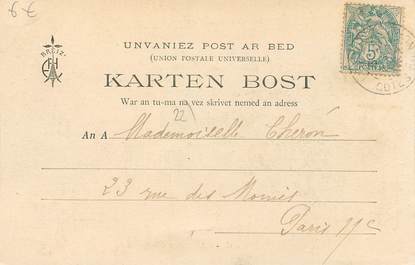 6 €
UNVANIEZ POST AR BED
(UNION POSTALE UNIVERSELLE)
BREIZ
KARTEN BOST
War an tu-ma na vez skrivet nemed an adress
22
An A Mademoiselle Cheron
23 rue des Moines
Paris 17e
5c